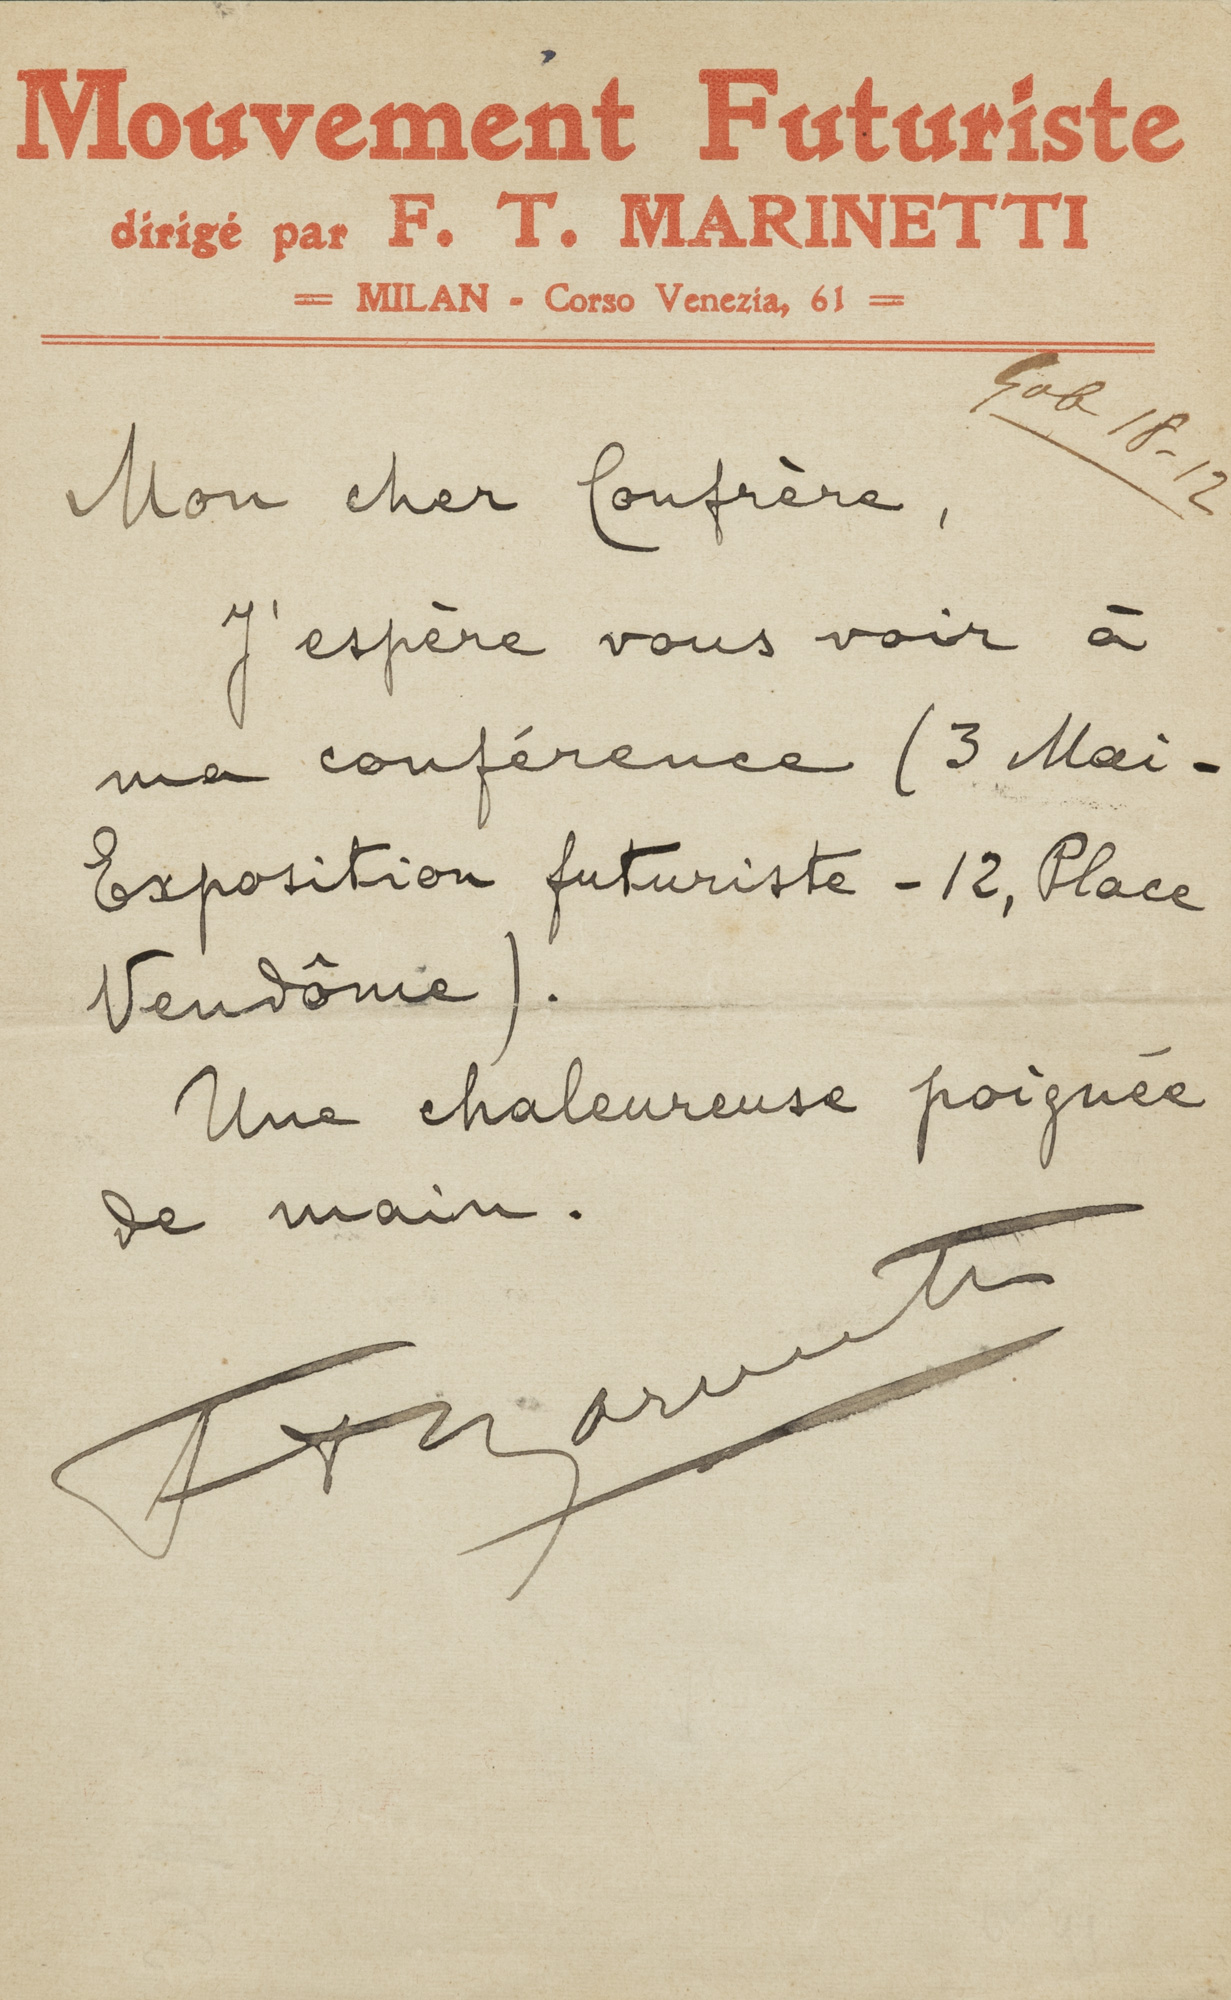 Mouvement Futuriste
dirigé par F. T. MARINETTI
= MILAN - Corso Venezia, 61 =
18-12
Mon cher Confrère,
J'espère vous voir à
ma conférence (3 Mai -
Exposition futuriste - 12, Place
Vendôme).
Une chaleureuse poignée
de main.
F. T. Marinetti